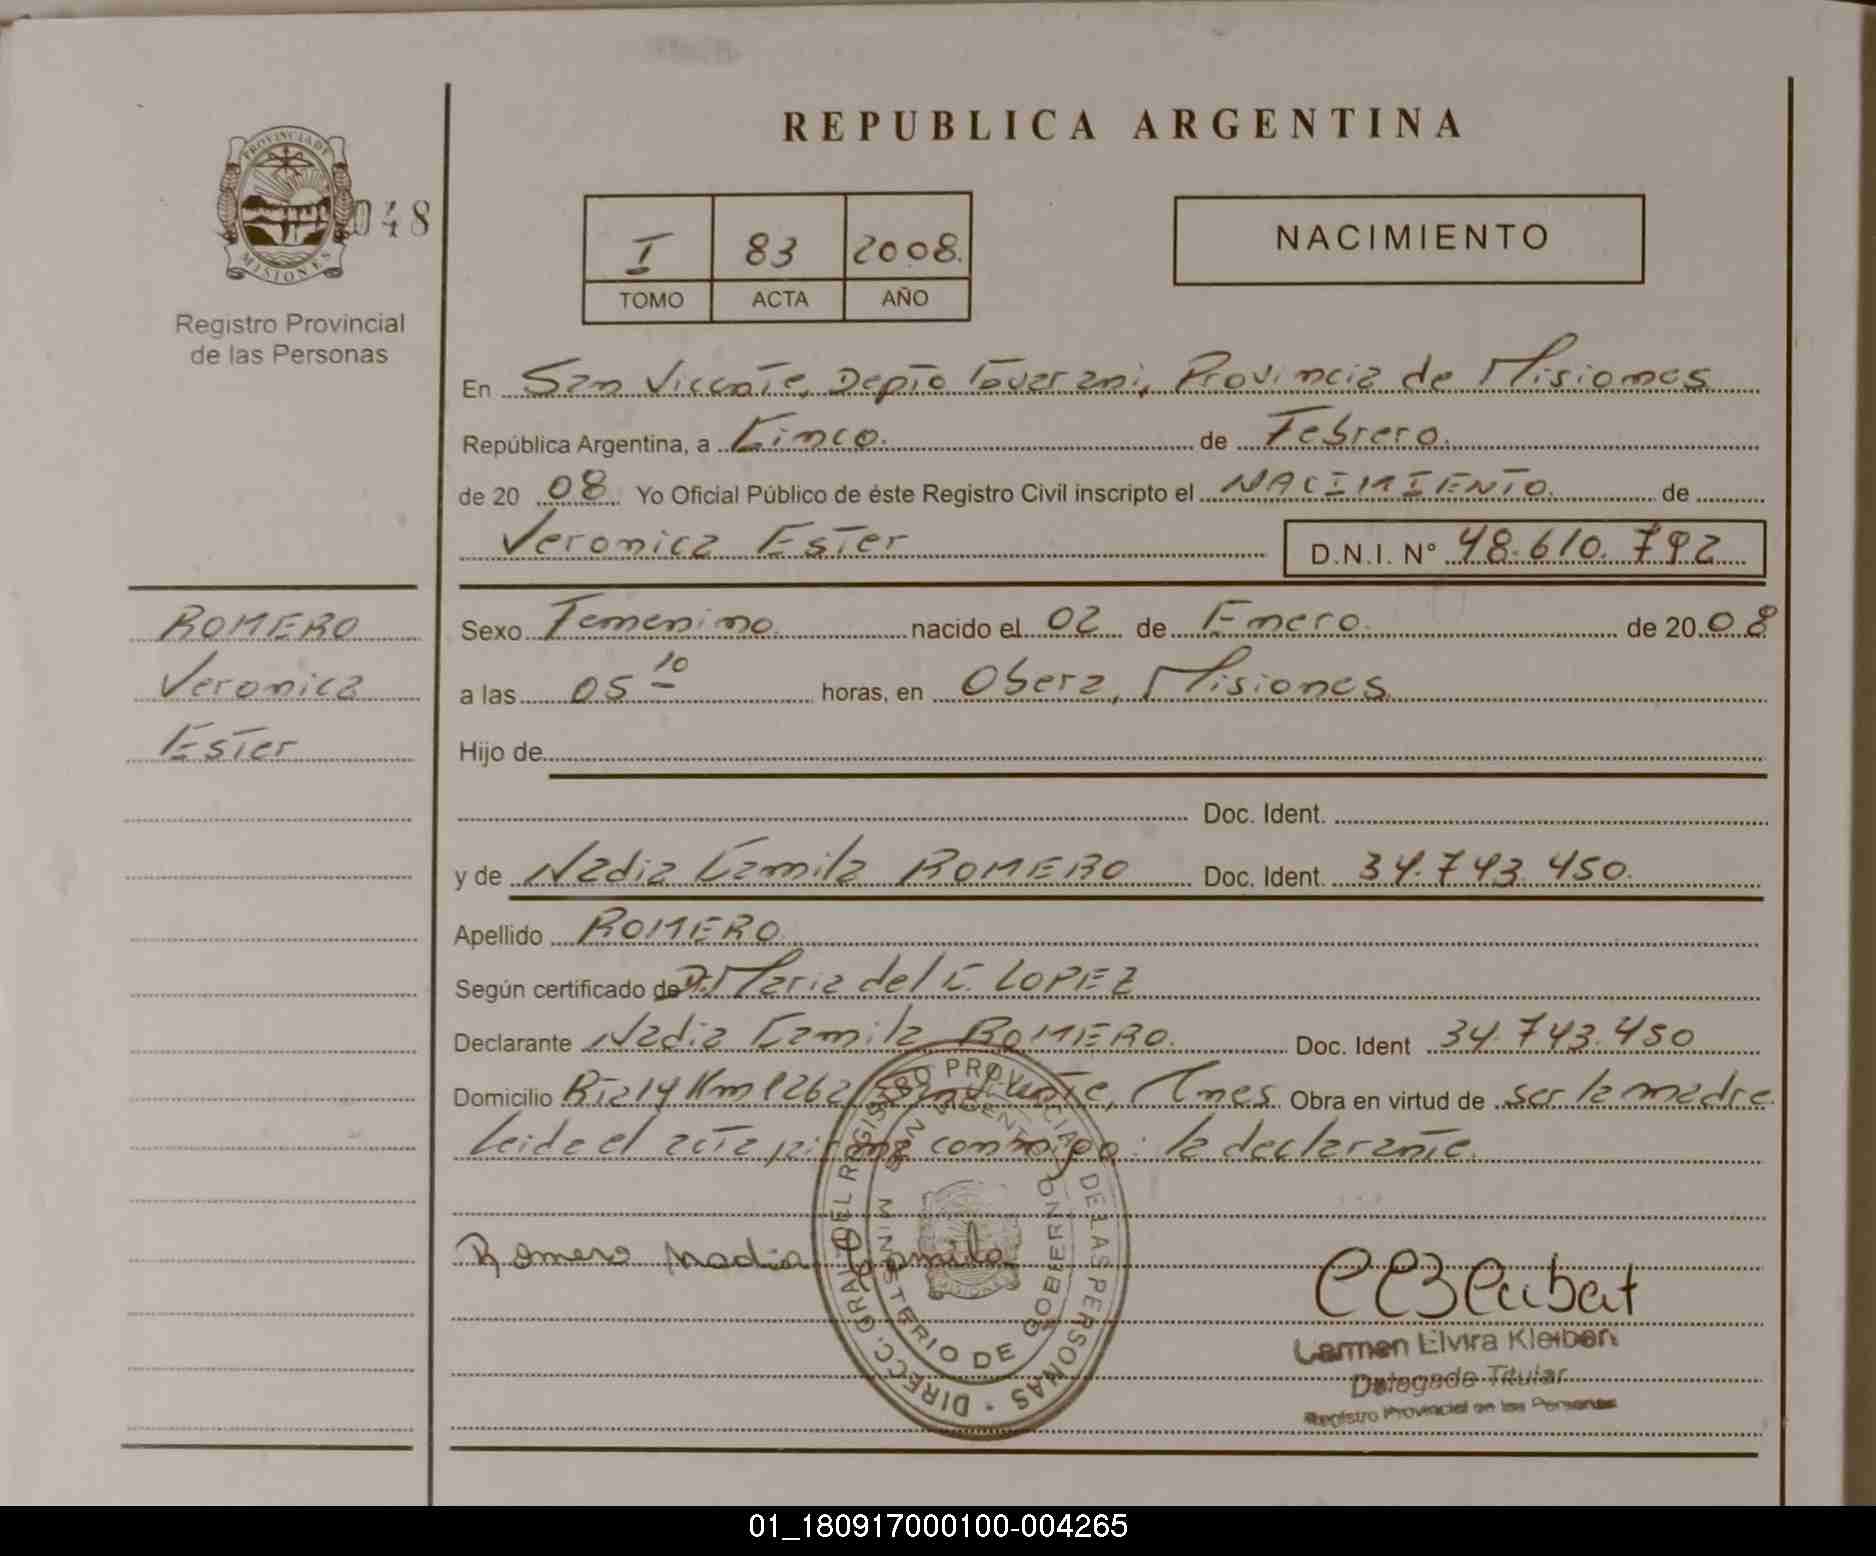 REPUBLICA ARGENTINA
PROVINCIA DE MISIONES
048
Registro Provincial
de las Personas
I 83 2008.
TOMO ACTA AÑO
NACIMIENTO
En San Vicente, Depto Guarani, Provincia de Misiones
República Argentina, a Cinco. de Febrero.
de 20 08 Yo Oficial Público de éste Registro Civil inscripto el NACIMIENTO. de
Veronica Ester D.N.I. N° 48.610.792
ROMERO
Veronica
Ester
Sexo Femenino nacido el 02 de Enero. de 20 08
a las 05 10 horas, en Obera, Misiones.
Hijo de
Doc. Ident.
y de Nadia Camila ROMERO Doc. Ident. 34.743.450.
Apellido ROMERO
Según certificado de Dr. Maria del C. LOPEZ
Declarante Nadia Camila ROMERO. Doc. Ident 34.743.450
Domicilio Rta 14 Km 1262 San Vicente, Mnes Obra en virtud de ser la madre
Leida el acta firma conmigo: la declarante.
Romero Nadia Camila
DIRECC. GRAL. DEL REGISTRO PROVINCIAL DE LAS PERSONAS
SAN VICENTE
MINISTERIO DE GOBIERNO
Carmen Elvira Kleiben
Delegada Titular
Registro Provincial de las Personas
01_180917000100-004265